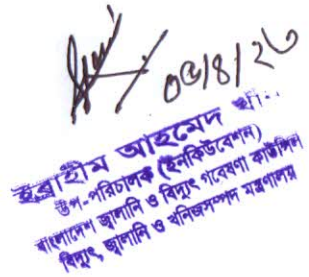 ০৫/৪/২৬
ইব্রাহীম আহমেদ
উপ-পরিচালক (ইনকিউবেশন)
বাংলাদেশ জ্বালানি ও বিদ্যুৎ গবেষণা কাউন্সিল
বিদ্যুৎ, জ্বালানি ও খনিজসম্পদ মন্ত্রণালয়